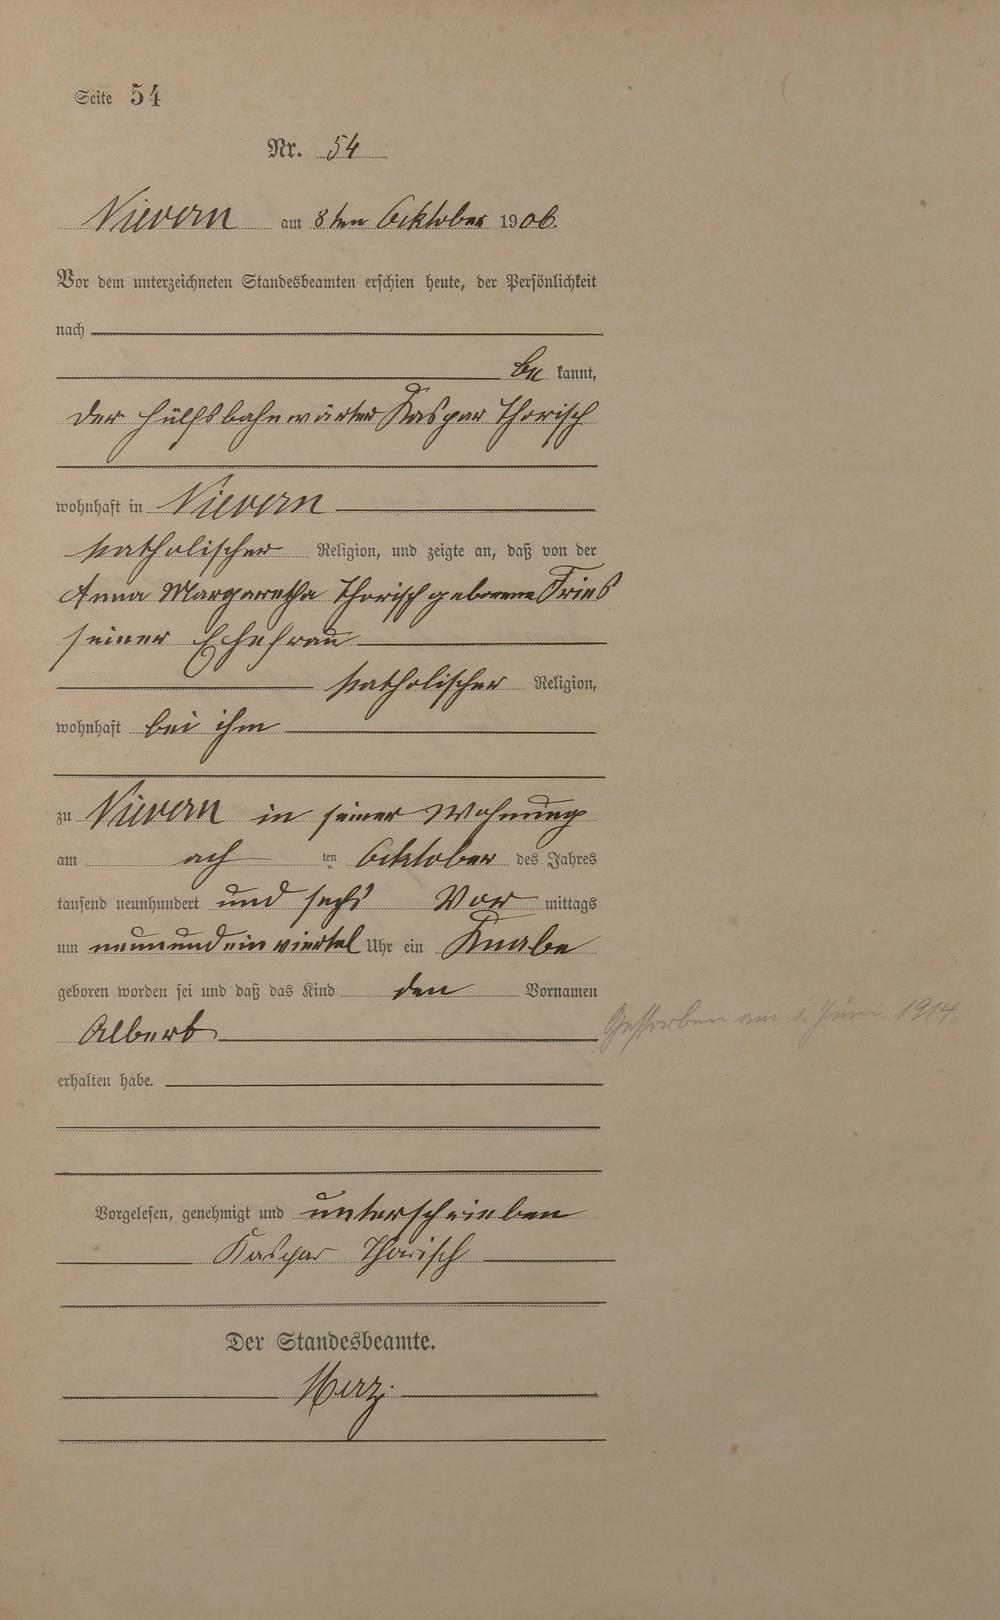 Seite 54
Nr. 54
Nievern am 8ten Ocktober 1906.
Vor dem unterzeichneten Standesbeamten erschien heute, der Persönlichkeit
nach
be kannt,
der Hülfsbahnwärter Kaspar Thorisch
wohnhaft in Nievern
katholischer Religion, und zeigte an, daß von der
Anna Margaretha Thorisch geborene Fries
seiner Ehefrau
katholischer Religion,
wohnhaft bei ihm
zu Nievern in seiner Wohnung
am ach ten Ocktober des Jahres
tausend neunhundert und sechs Vor mittags
um neunundeinviertel Uhr ein Knabe
geboren worden sei und daß das Kind den Vornamen
Albert
Gestorben am 1. Juni 1914
erhalten habe.
Vorgelesen, genehmigt und unterschrieben
Kaspar Thorisch
Der Standesbeamte.
Merz.